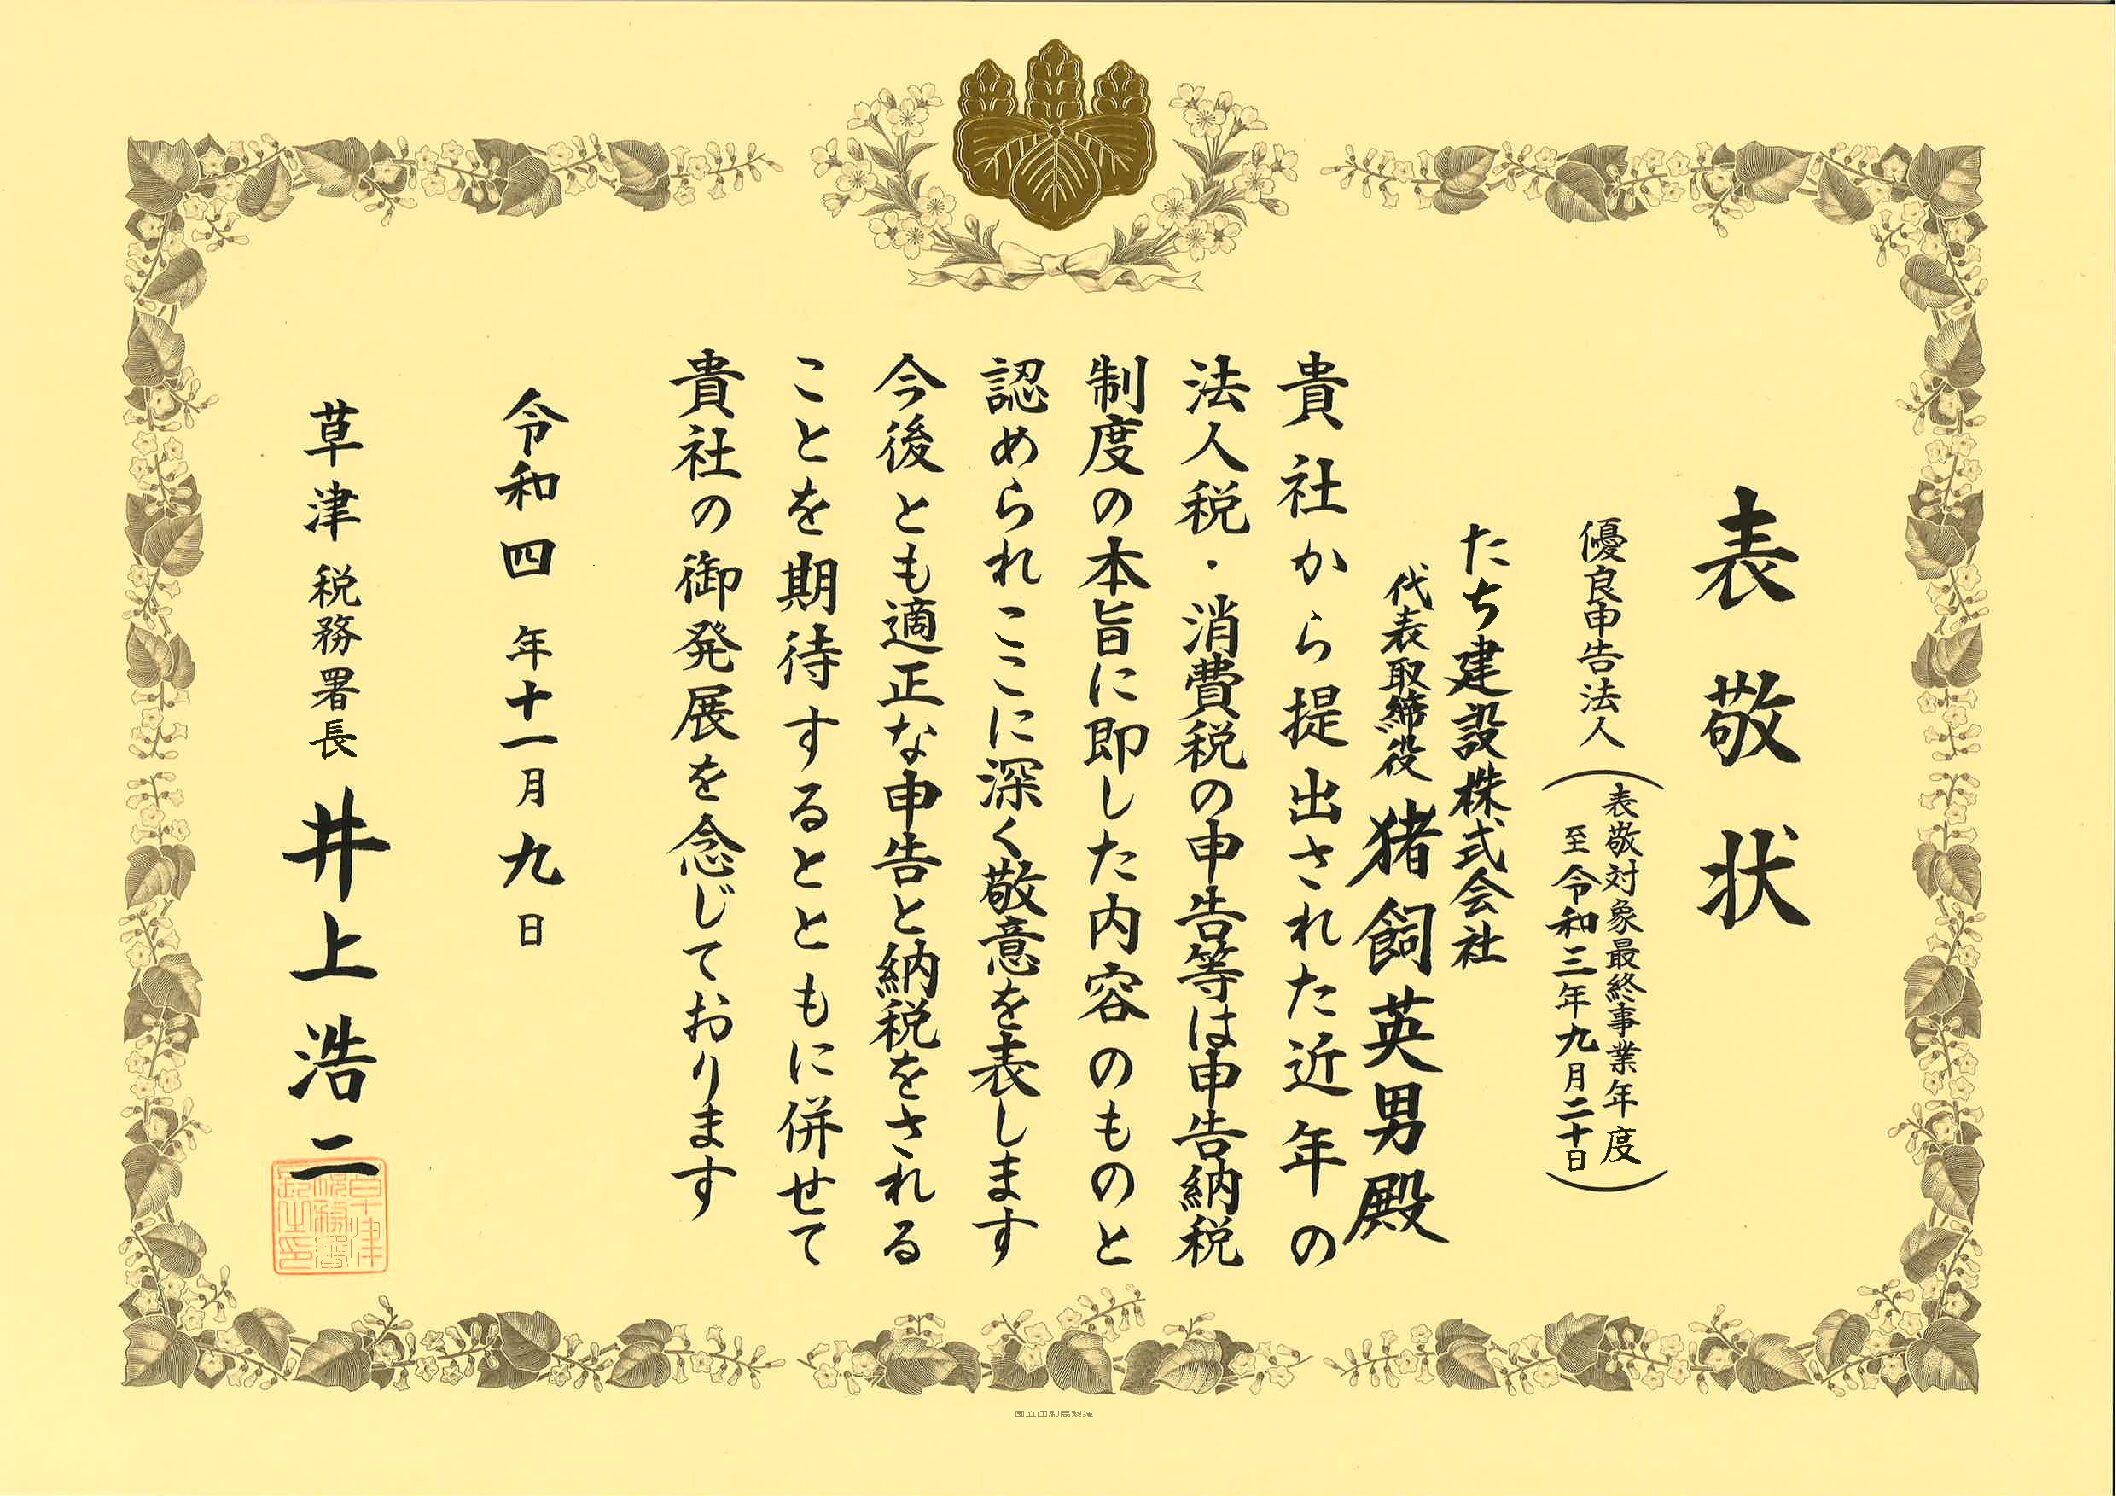 表敬状
優良申告法人
(表敬対象最終事業年度
至令和三年九月二十日)
たち建設株式会社
代表取締役 猪飼英男殿
貴社から提出された近年の
法人税・消費税の申告等は申告納税
制度の本旨に即した内容のものと
認められここに深く敬意を表します
今後とも適正な申告と納税をされる
ことを期待するとともに併せて
貴社の御発展を念じております
令和四年十一月九日
草津税務署長 井上浩二
草津
税務署
長之印
国立印刷局製造